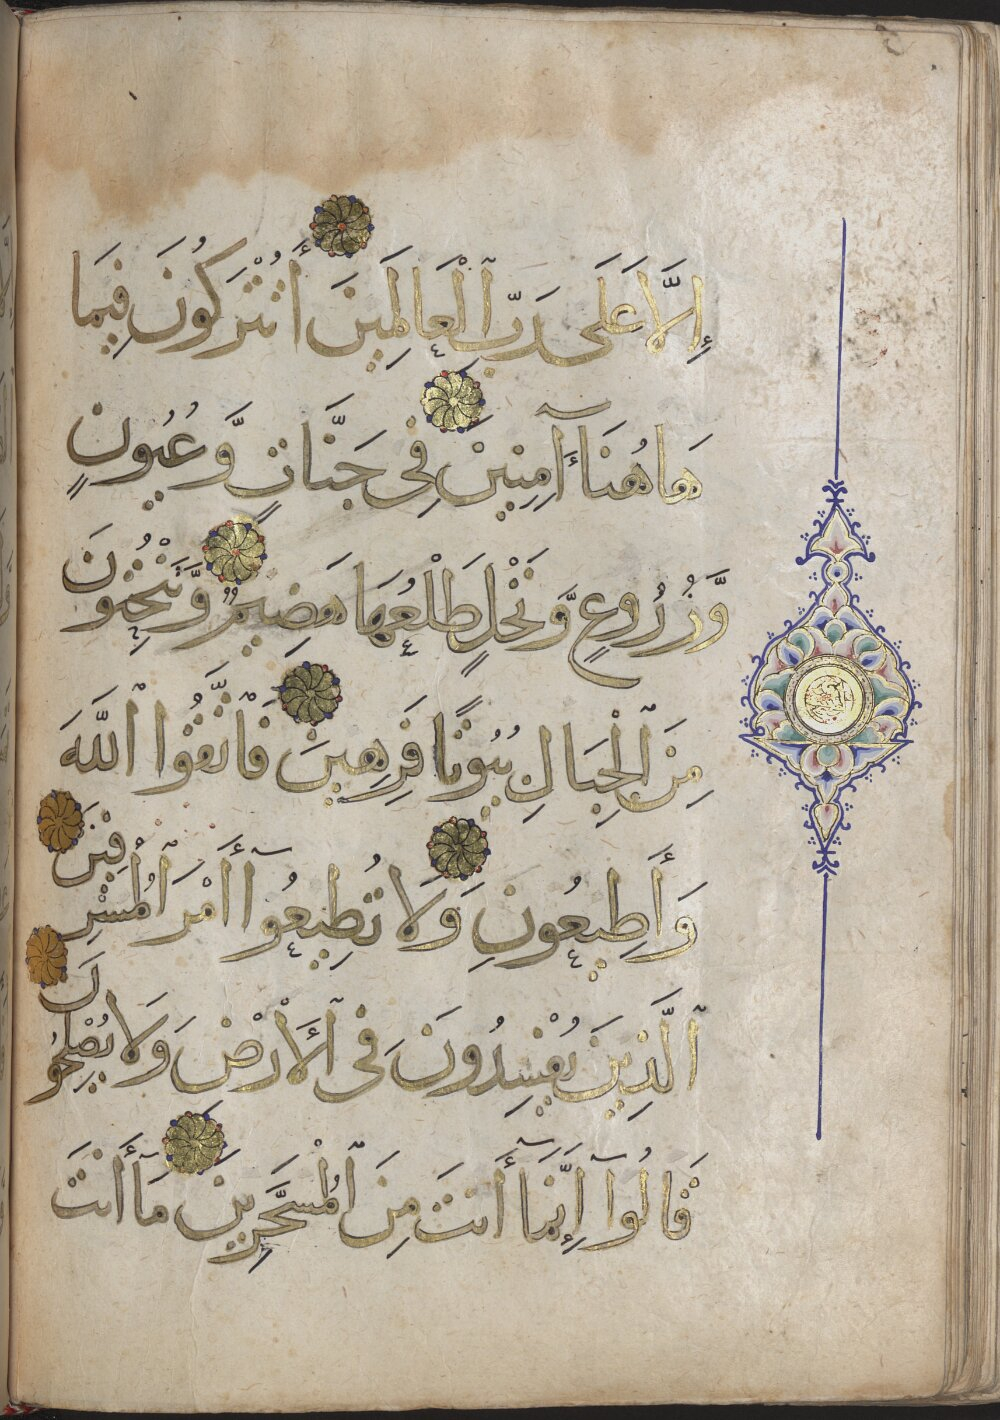 إِلَّا عَلَى رَبِّ ٱلْعَالَمِينَ أَتُتْرَكُونَ فِيمَا
هَاهُنَآ آمِنِينَ فِى جَنَّاتٍ وَّعُيُونٍ
وَّزُرُوعٍ وَّنَخْلٍ طَلْعُهَا هَضِيمٌ وَّتَنْحِتُونَ
مِنَ ٱلْجِبَالِ بُيُوتًا فَرِهِينَ فَاتَّقُوا ٱللَّهَ
وَأَطِيعُونِ وَلَا تُطِيعُوٓا أَمْرَ ٱلْمُسْرِفِينَ
ٱلَّذِينَ يُفْسِدُونَ فِى ٱلْأَرْضِ وَلَا يُصْلِحُونَ
قَالُوٓا إِنَّمَآ أَنتَ مِنَ ٱلْمُسَحَّرِينَ مَآ أَنتَ